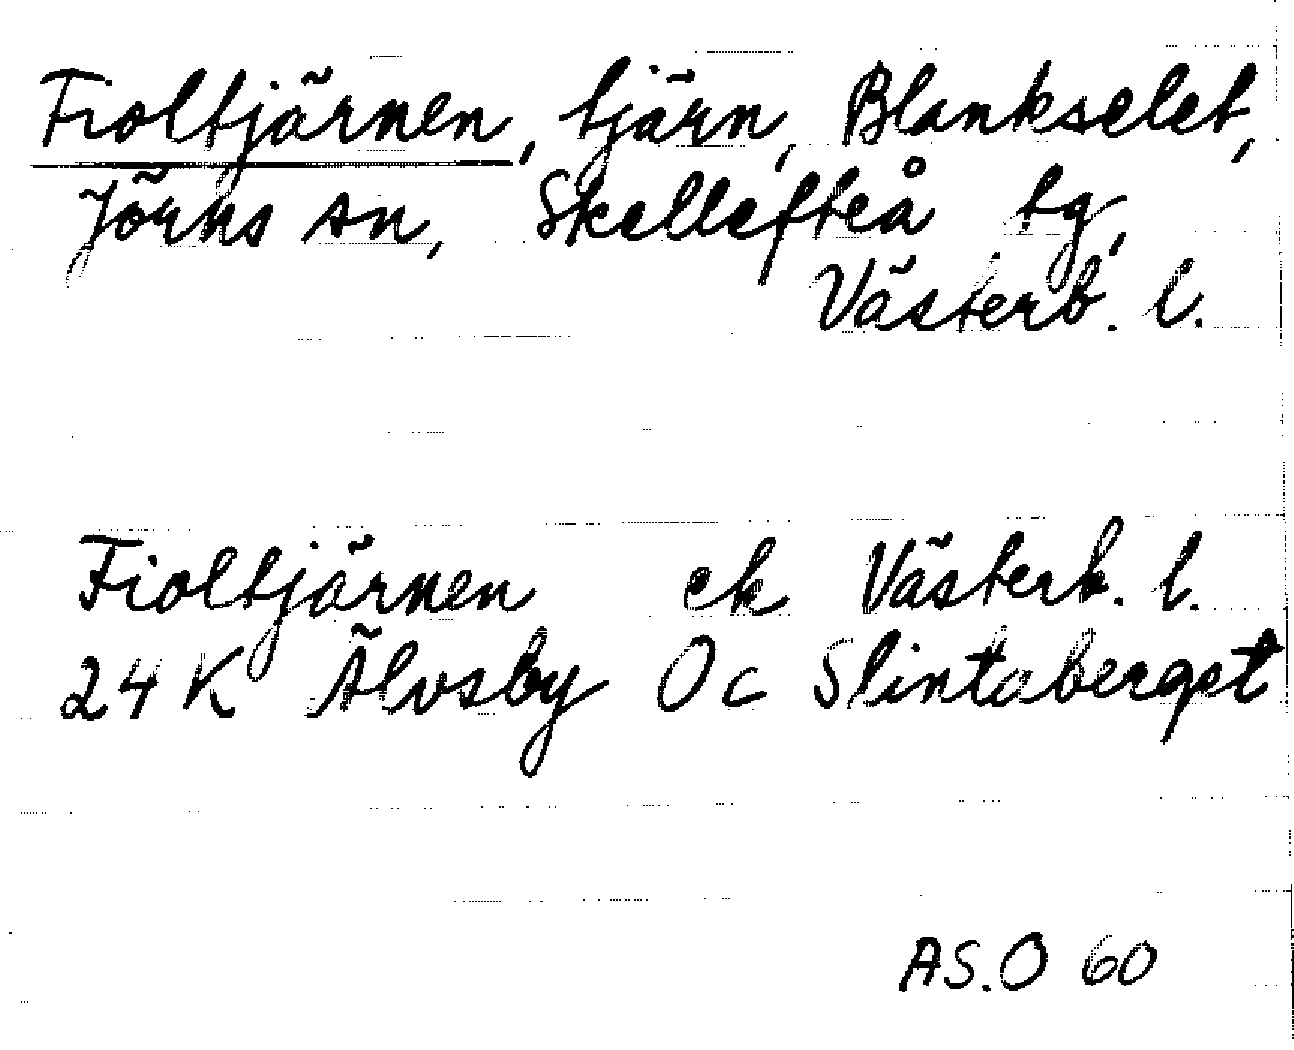 Fioltjärnen, tjärn, Blankselet,
Jörns sn, Skellefteå tg,
Västerb. l.
Fioltjärnen ek Västerb. l.
24 K Älvsby Oc Slintaberget
AS.O 60